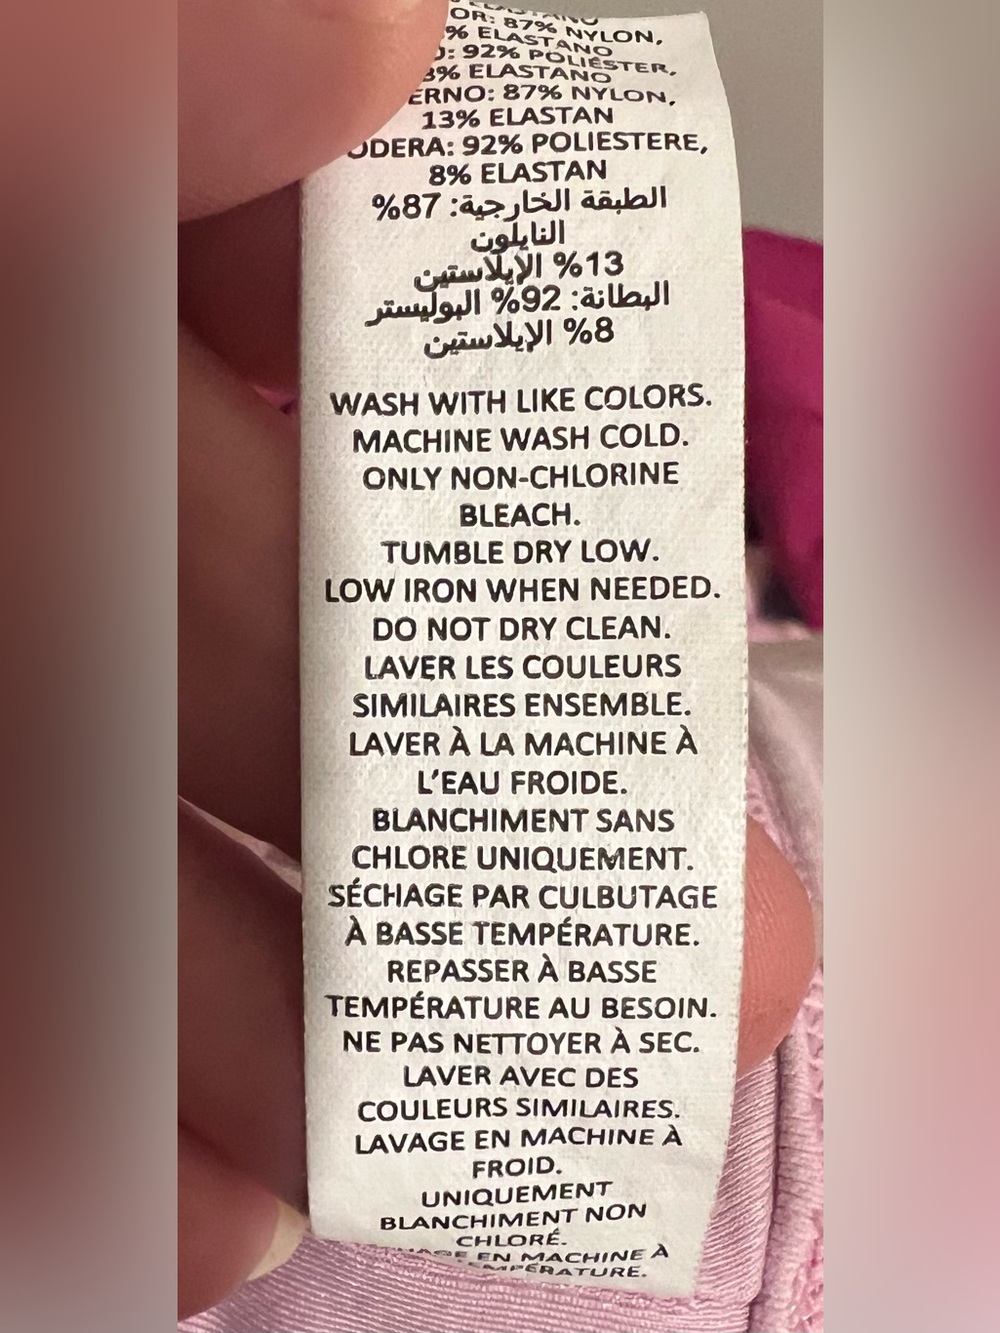 OR: 87% NYLON,
% ELASTANO
: 92% POLIÉSTER,
8% ELASTANO
ERNO: 87% NYLON,
13% ELASTAN
ODERA: 92% POLIESTERE,
8% ELASTAN
الطبقة الخارجية: 87%
النايلون
13% الإيلاستين
البطانة: 92% البوليستر
8% الإيلاستين
WASH WITH LIKE COLORS.
MACHINE WASH COLD.
ONLY NON-CHLORINE
BLEACH.
TUMBLE DRY LOW.
LOW IRON WHEN NEEDED.
DO NOT DRY CLEAN.
LAVER LES COULEURS
SIMILAIRES ENSEMBLE.
LAVER À LA MACHINE À
L'EAU FROIDE.
BLANCHIMENT SANS
CHLORE UNIQUEMENT.
SÉCHAGE PAR CULBUTAGE
À BASSE TEMPÉRATURE.
REPASSER À BASSE
TEMPÉRATURE AU BESOIN.
NE PAS NETTOYER À SEC.
LAVER AVEC DES
COULEURS SIMILAIRES.
LAVAGE EN MACHINE À
FROID.
UNIQUEMENT
BLANCHIMENT NON
CHLORÉ.
EN MACHINE À
TEMPÉRATURE.